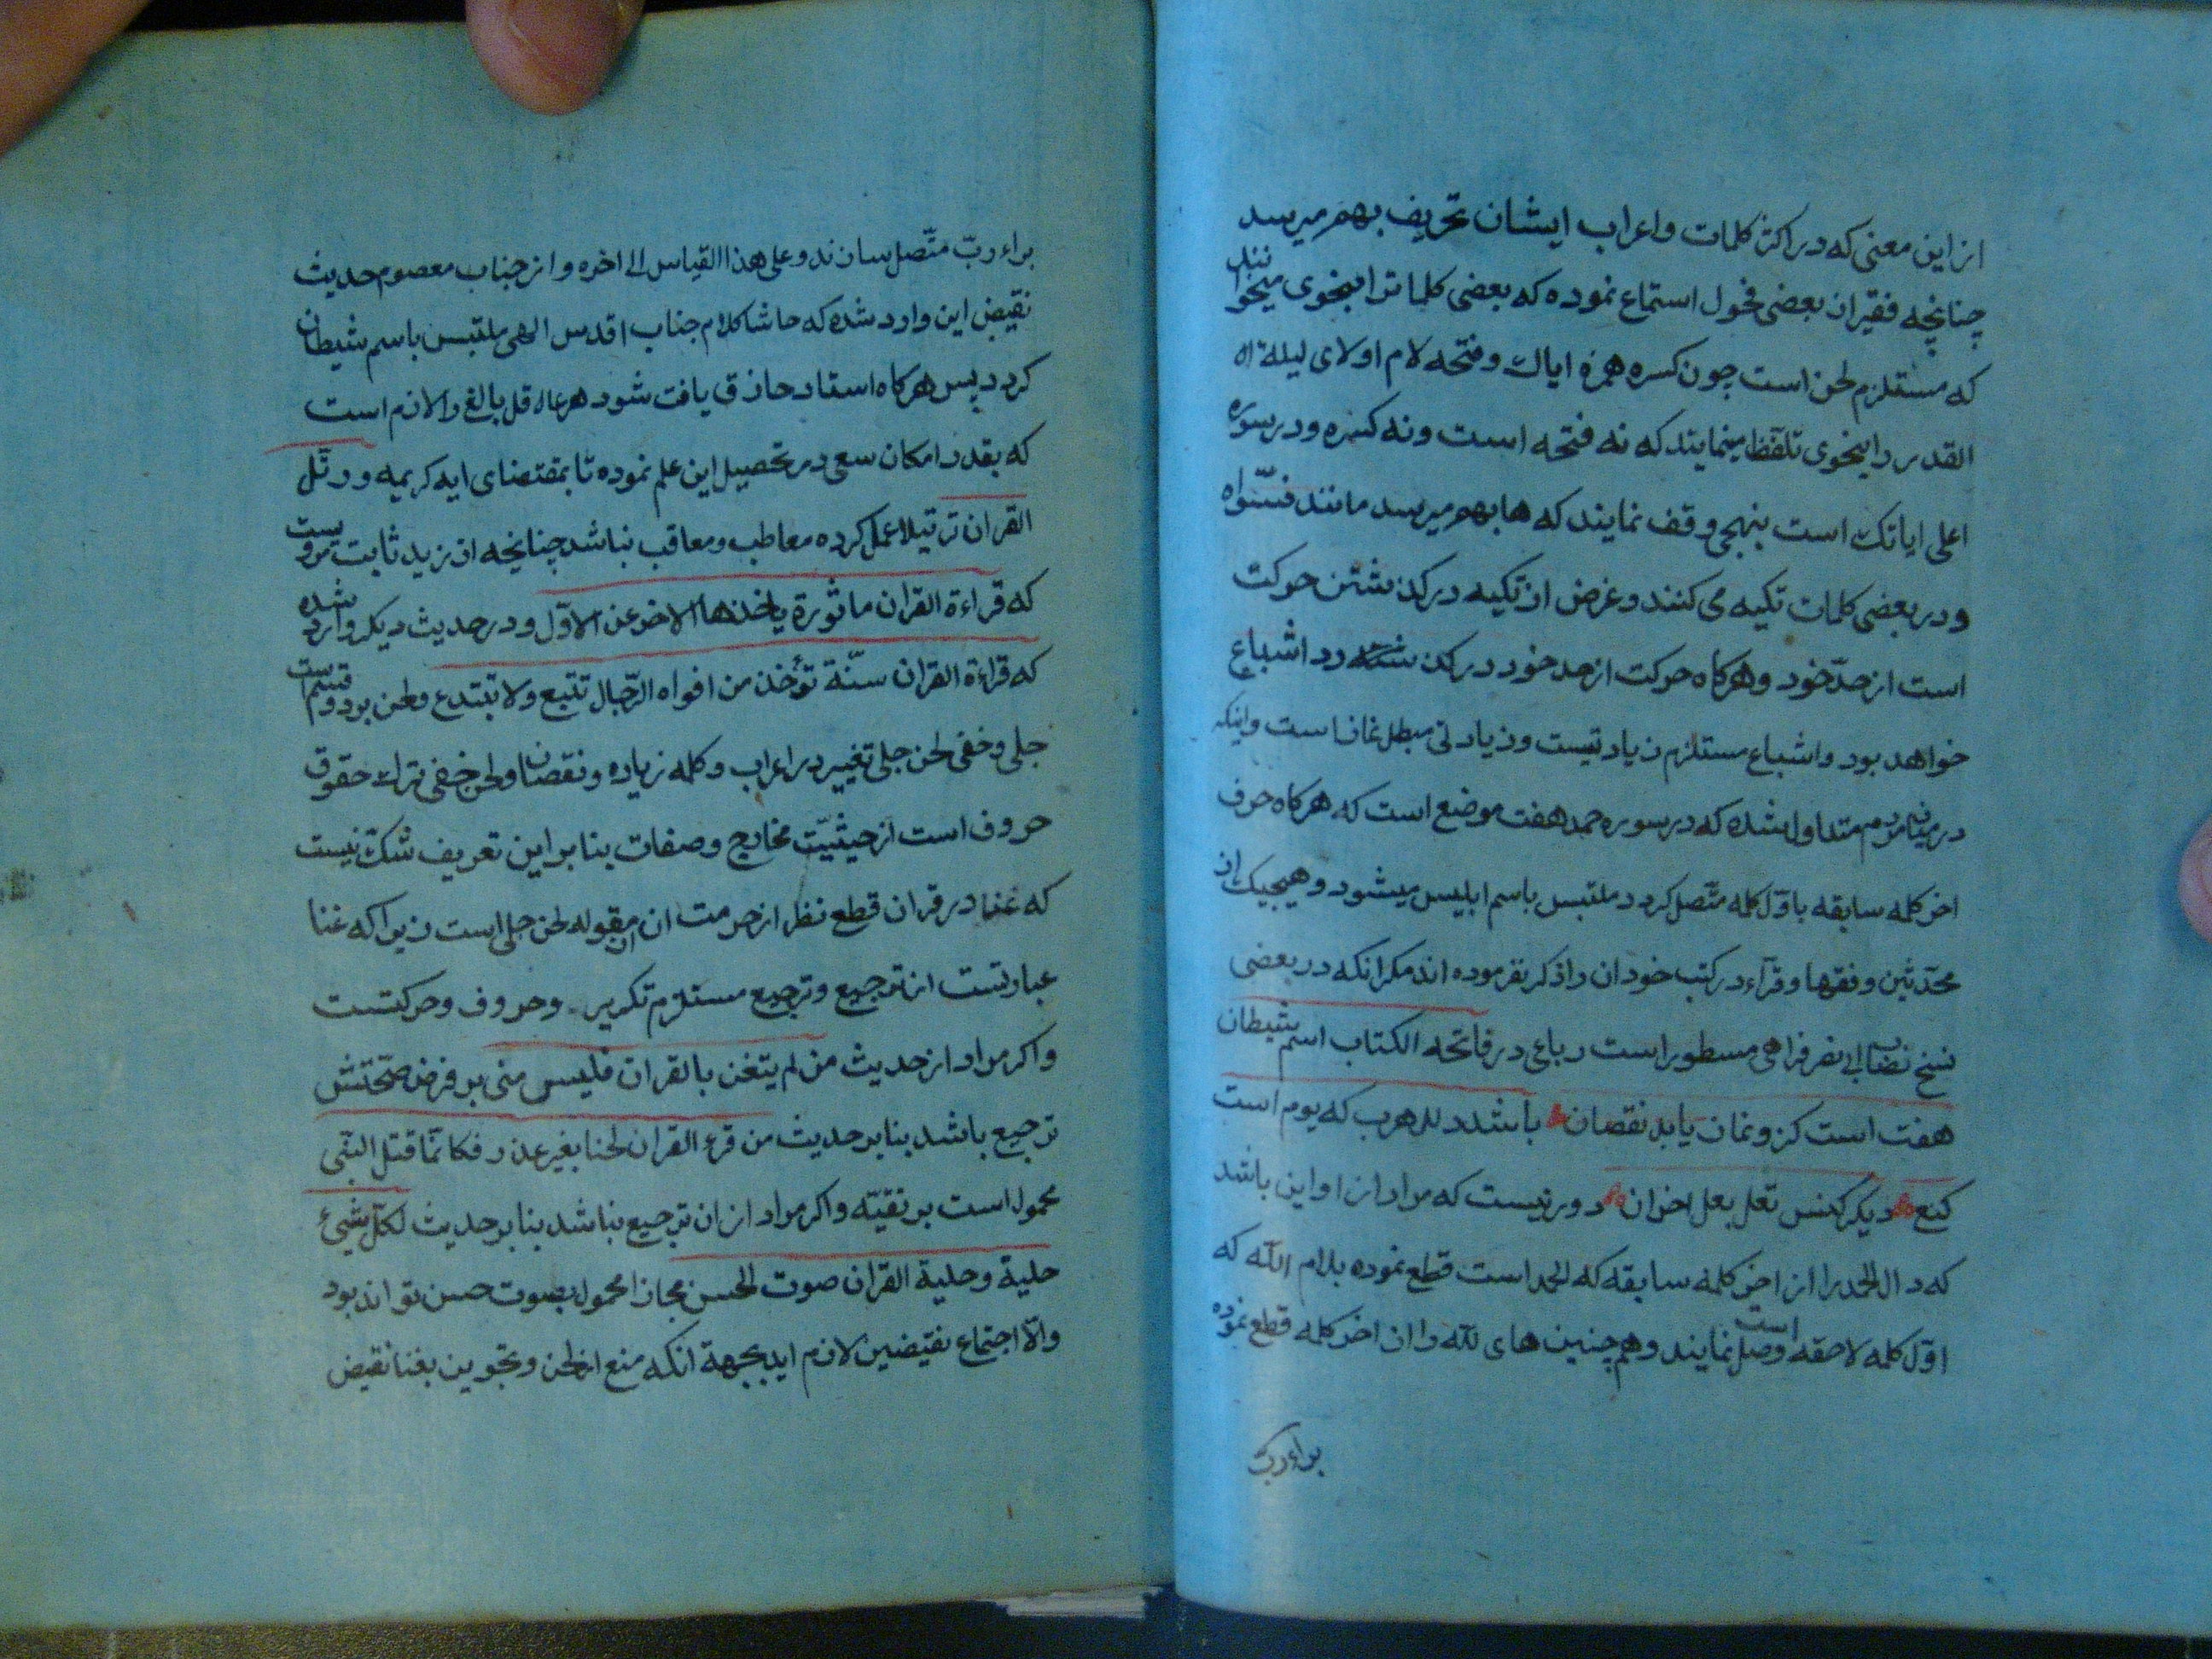 از این معنی که در اکثر کلمات و اعراب ایشان تحریف بهم میرسد
چنانچه فقیر از بعضی فحول استماع نموده که بعضی کلماترا بنحوی میخوانند
که مستلزم لحن است چون کسره همزه ایاک و فتحه لام اولای لیلة
القدر را بنحوی تلفظ مینمایند که نه فتحه است و نه کسره و در سوره
اعلی ایاتک است بنهجی وقف نمایند که ها بهم میرسد مانند فسواه
و در بعضی کلمات تکیه می کنند و غرض از تکیه در کذشتن حرکت
است از حد خود و هرکاه حرکت از حد خود در کذ رد اشباع
خواهد بود و اشباع مستلزم زیادتیست و زیادتی مبطل نماز است و اینکه
در میان مردم متداول شده که در سوره حمد هفت موضع است که هرکاه حرف
اخر کلمه سابقه باول کلمه متصل کردد ملتبس باسم ابلیس میشود و هیچیک از
محدثین و فقها و قراء در کتب خود ان را ذکر نفرموده اند مکر انکه در بعضی
نسخ نصاب ابی نصر فراهی مسطور است رباعی در فاتحه الکتاب اسم شیطان
هفت است کزو نماز یابد نقصان باشد دلل هرب که یوم است
کنع دیکر کنس تعل بعل اخران دور نیست که مراد از او این باشد
که دال الحمد را از اخر کلمه سابقه که الحمد است قطع نموده بلام الله که
اول کلمه لاحقه است وصل نمایند و همچنین های لله را از اخر کلمه قطع نموده
براء رب
براء رب متصل سازند و علی هذا القیاس الی اخره و از جناب معصوم حدیث
نقیض این وارد شده که حاشا کلام جناب اقدس الهی ملتبس باسم شیطان
کردد پس هرکاه استاد حاذق یافت شود هر عاقل بالغ را لازم است
که بقدر امکان سعی در تحصیل این علم نموده تا بمقتضای ایه کریمه و رتل
القران ترتیلا عمل کرده معاطب و معاقب نباشد چنانچه از زید ثابت مرویست
که قراءة القران ماثورة یاخذها الاخر عن الاول و در حدیث دیکر وارد شده
که قراءة القران سنة تؤخذ من افواه الرجال تتبع ولا تبتدع و لحن بر دو قسم است
جلی و خفی لحن جلی تغییر در اعراب و کلمه زیاده و نقصان و لحن خفی ترک حقوق
حروف است از حیثیت مخارج و صفات بنا بر این تعریف شک نیست
که غنا در قران قطع نظر از حرمت ان از مقوله لحن جلی است زیرا که غنا
عبارتست از ترجیع و ترجیع مستلزم تکریر و حروف و حرکتست
و اکر مراد از حدیث من لم یتغن بالقران فلیس منی بر فرض صحتش
ترجیع باشد بنا بر حدیث من قرء القران لحنا بغیر عذر فکانما قتل النبی
محمول است بر تقیه و اکر مراد از ان ترجیع نباشد بنا بر حدیث لکل شیئ
حلیة و حلیة القران صوت الحسن مجازا محمول بصوت حسن تواند بود
والا اجتماع نقیضین لازم اید بجهة انکه منع از لحن و تجویز بغنا نقیض